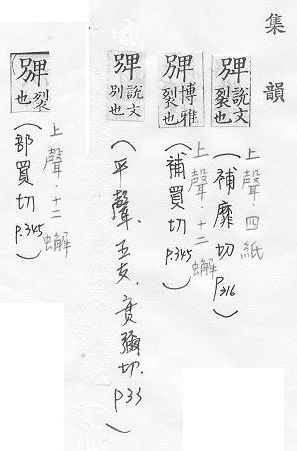 集韻
說文裂也
上聲.四紙
(補靡切 P316)
博雅裂也
上聲.十二蠏
(補買切 P.345)
說文別也
(平聲.五支.賔彌切.P33)
裂也
上聲.十二蠏
(部買切 P.345)